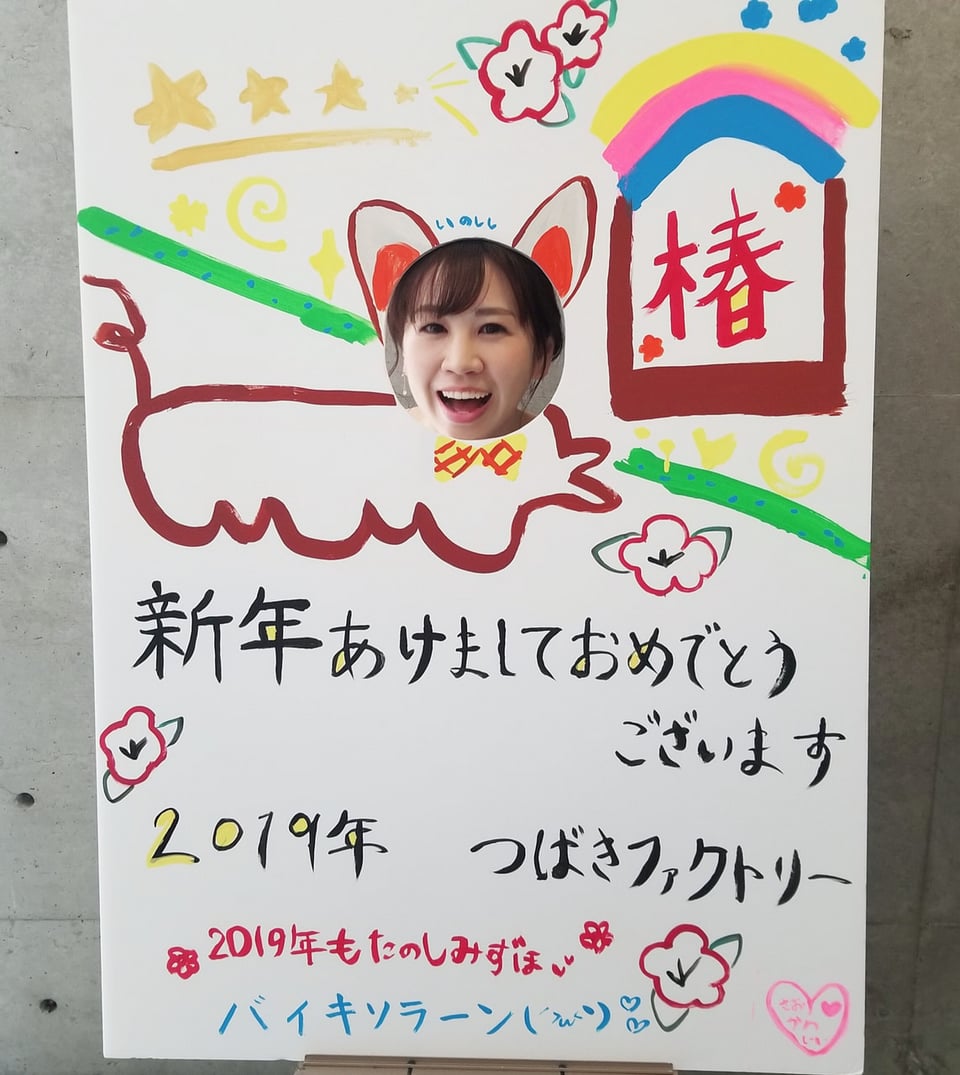 いのしし
椿
新年あけましておめでとう
ございます
2019年 つばきファクトリー
2019年もたのしみずほ
バイキソラーン
さおり
かわいい